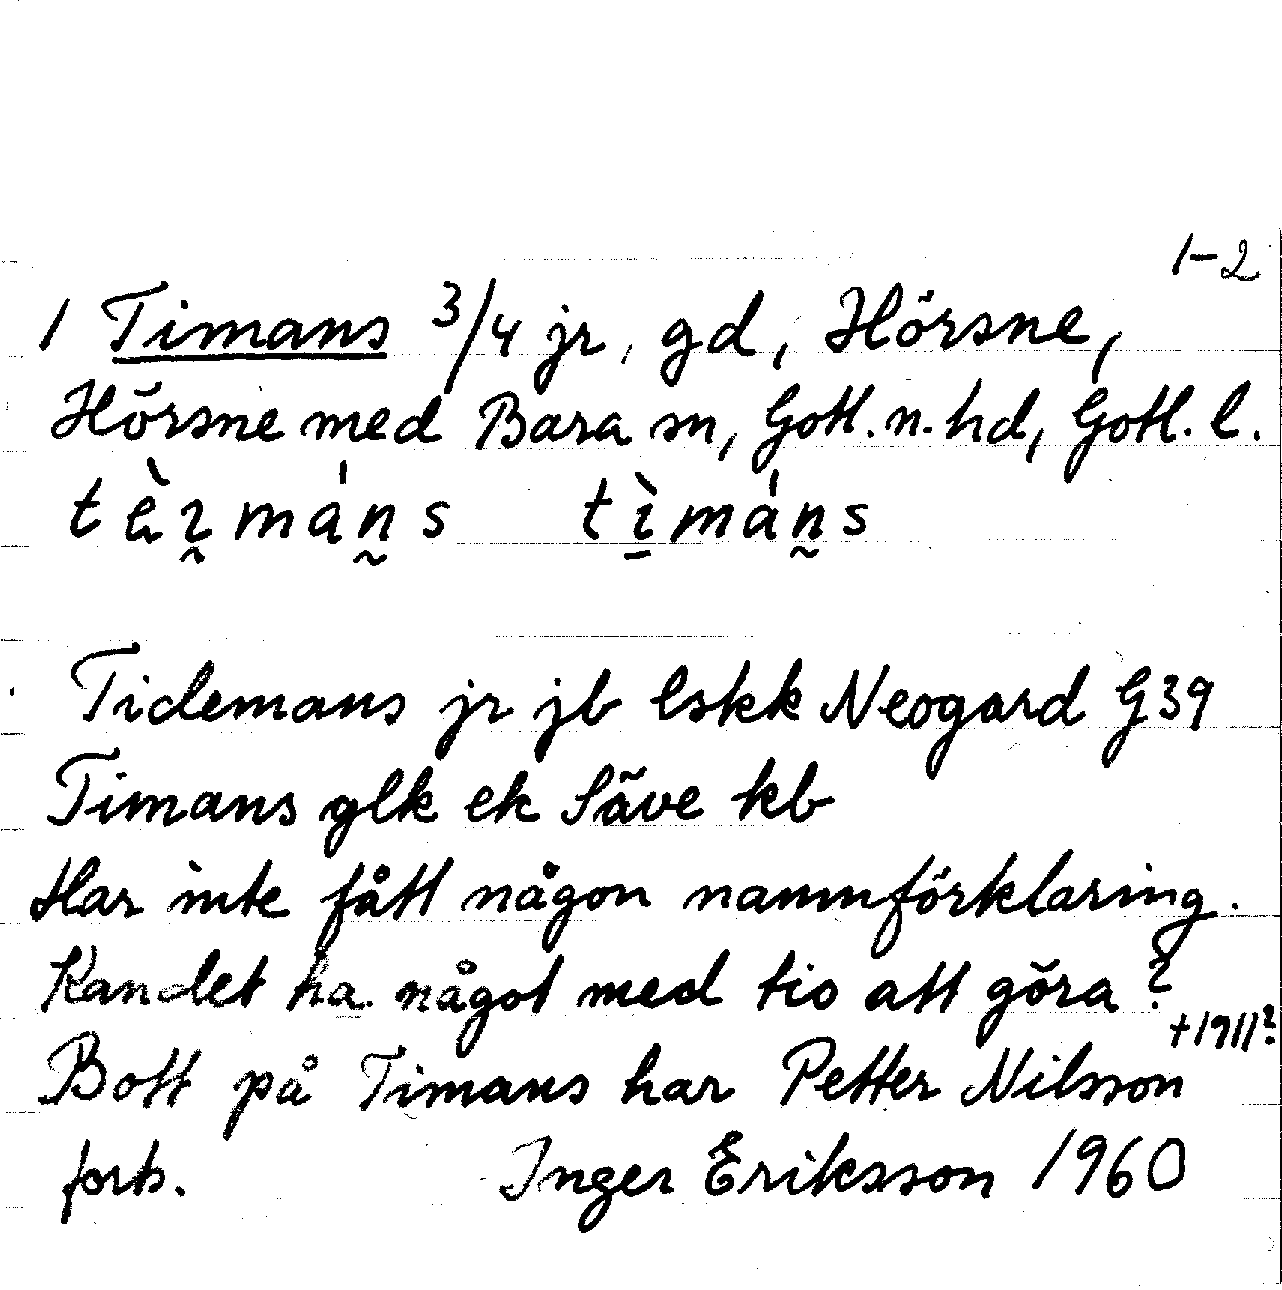 1-2
1 Timans 3/4 jr, gd, Hörsne,
Hörsne med Bara sn, Gotl. n. hd, Gotl. l.
Tidemans jr jb lskk Neogard G39
Timans glk ek Säve kb
Har inte fått någon namnförklaring.
Kan det ha något med tio att göra?
+1911?
Bott på Timans har Petter Nilsson
forts. Inger Eriksson 1960